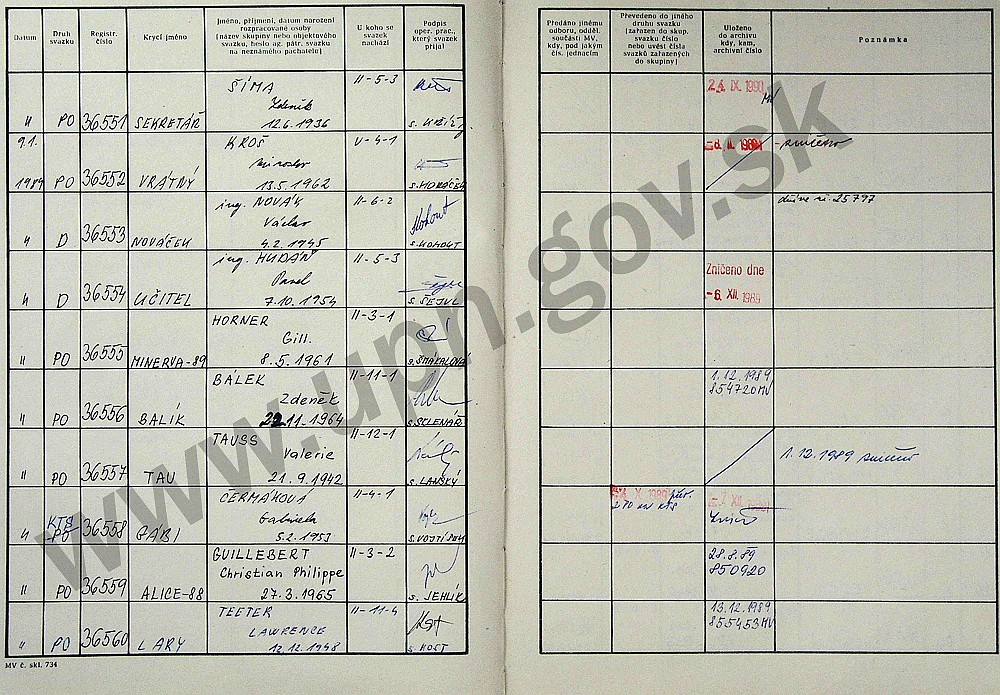 Datum
Druh
svazku
Registr.
číslo
Krycí jméno
Jméno, příjmení, datum narození
rozpracované osoby
(název skupiny nebo objektového
svazku, heslo ag. pátr. svazku
na neznámého pachatele)
U koho se
svazek
nachází
Podpis
oper. prac.,
který svazek
přijal
Předáno jinému
odboru, odděl.
součásti MV,
kdy, pod jakým
čís. jednacím
Převedeno do jiného
druhu svazku
(zařazen do skup.
svazku číslo
nebo uvést čísla
svazků zařazených
do skupiny)
Uloženo
do archivu
kdy, kam,
archivní číslo
Poznámka
ŠÍMA II-5-3
Zdeněk
" PO 36551 SEKRETÁŘ 12.6.1936
IX. 1990
MV
9.1. KROŠ V-4-1
Miroslav
1989 PO 36552 VRÁTNÝ 13.5.1962 s. HORÁČEK
ing. NOVÁK II-6-2
Václav
" D 36553 NOVÁČEK 4.2.1945 s. KOHOUT
dříve č. 25797
ing. HUDÁŇ II-5-3
Pavel
" D 36554 UČITEL 7.10.1954 s. ŠEJVL
Zničeno dne
-6. XII. 1989
HORNER II-3-1
Gill.
" PO 36555 MINERVA-89 8.5.1961 s. SMÁKALOVÁ
BÁLEK II-11-1
Zdeněk
" PO 36556 BALÍK 22.11.1964 s. SKLENÁŘ
1.12.1989
854720 MV
TAUSS II-12-1
Valerie
" PO 36557 TAU 21.9.1942 s. LANSKÝ
1.12.1989
ČERMÁKOVÁ II-4-1
KTS Gabriela
" PO 36558 GÁBI 5.2.1953
X. 1989
GUILLEBERT II-3-2
Christian Philippe
" PO 36559 ALICE-88 27.3.1965 s. JEHLÍK
28.8.89
850920
TEETER II-11-4
LAWRENCE
" PO 36560 LARY 12.12.1948 s. HOST
13.12.1989
855453 MV
MV č. skl. 734
www.upn.gov.sk